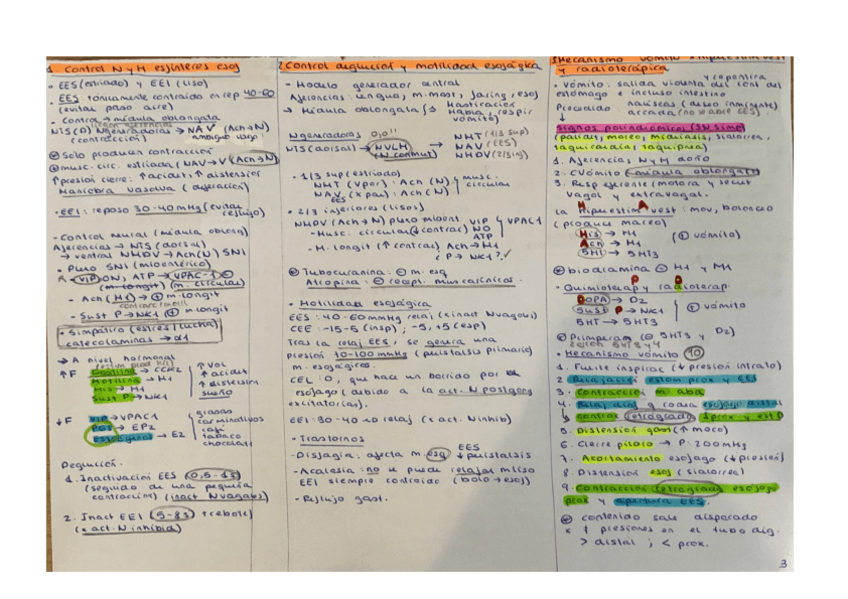 1. Control N y H esfínteres esof
· EES (estriado) y EEI (liso)
· EES tónicamente contraído en rep 40-60
(evitar paso aire)
· Control → médula oblongata
NTS (D) Ngeneradoras → NA V (Ach→N)
(contracción) ambiguo
Solo producen contracción
musc. circ. estriada (NAV → V (Ach→N)
↑ presión cierre: ↑ acidez, ↑ distensión
Maniobra vasalva
· EEI: reposo 30-40mmHg (evitar
reflujo)
· Control neural (médula oblong)
Aferencias → NTS (dorsal)
→ ventral NMDV → Ach(N) SNI
· Plexo SNI (mioentérico)
VIP, ON, ATP → VPAC-1 ⊖
(m. longit) (m. circular)
- Ach (M1) → ⊕ m. longit
- Sust P → NK1 ⊕ m. longit
· Simpática (estrés/lucha)
catecolaminas → α1
→ A nivel hormonal
↑F Gastrina → CCK2
Motilina → M1
His → H1
Sust P → NK1
↑ vol
↑ acidez
↑ distensión
sueño
↓F VIP → VPAC1
PGE → EP2
Estrógenos → E2
grasas
carminativos
café
tabaco
chocolate
Deglución.
1. Inactivación EES (0,5-1s)
(seguido de una pequeña
contracción) (inact N vagales)
2. Inact EEI (5-8s) + rebote)
(x act. N inhibid)
2. Control deglución y motilidad esofágica
· Modelo generador central
Aferencias: lengua, m. mast, faring, eso)
→ Médula oblongata (→ Masticación
Habla, (respir
vómito)
Ngeneradoras
NTS (dorsal) → NVLM →
(N conmut)
NMT (1/3 sup)
NAV (EES)
NMDV (2/3ig)
· 1/3 sup (estriado)
NMT (V par): Ach (N)
NAV (X par): Ach (N)
EES
musc.
circular
· 2/3 inferiores (lisos)
NMDV (Ach→N) plexo mient.
- Musc. circular (↓ contrac)
VIP
NO
ATP
VPAC1
- M. longit (↑ contrac) Ach→M1
(P → NK1?)
Tubocuranina: ⊖ m. esq
Atropina: ⊖ recept. muscarínicos
· Motilidad esofágica
EES: 40-60mmHg relaj (x inact N vagales)
CEE: -15-5 (insp); -5,+5 (esp)
Tras la relaj EES, se genera una
presión 10-100mmHg (peristalsis primaria)
m. esofágicos.
CEL: 0, que hace un borrido por el
esófago (debido a la act. N postgang
excitatorias).
EEI: 30-40 → 0 relaj (x act. N inhib)
· Trastornos
- Disfagia: afecta m. esq EES
↓ peristalsis
- Acalasia: no se puede relajar m liso
EEI siempre contraído (bolo → eso)
- Reflujo gast.
3 Mecanismo vómito, hiperestim vest
y radioterápica
· Vómito: salida violenta y repentina del cont del
estómago e incluso intestino
Precedido: náuseas (deseo inminente)
arcada (no se abre EES)
↓
signos prodrómicos (SN simp)
(palidez, mareo, midriasis, sialorrea,
taquicardia, taquipnea)
1. Aferencias N y H daño
2. CVómito (médula oblongata)
3. Resp eferente (motora y secret
vagal y extravagal.
La Hiperestim A vest: mov, balanceo
(produce mareo)
His → H1
Ach → M1
5HT → 5HT3
(⊕ vómito)
biodramina ⊖ H1 y M1
· Quimioterap y radioterap
DOPA → D2
Sust P → NK1
5HT → 5HT3
⊕ vómito
Primperan (⊖ 5HT3 y D2)
· Mecanismo vómito (10)
1. Fuerte inspirac (↓ presión intrato)
2 Relajación estom prox y EEI
3. Contracción m. abd
contrac retrógrada
5. Distensión gast (↑ moco)
6. Cierre píloro → P: 200mmHg
7. Acortamiento esófago (↓ presión)
8. Distensión esof (sialorrea)
9. Contracción retrógrada esófago
prox y apertura EES.
contenido sale disparado
x ↑ presiones en el tubo dig.
> distal ; < prox.
3